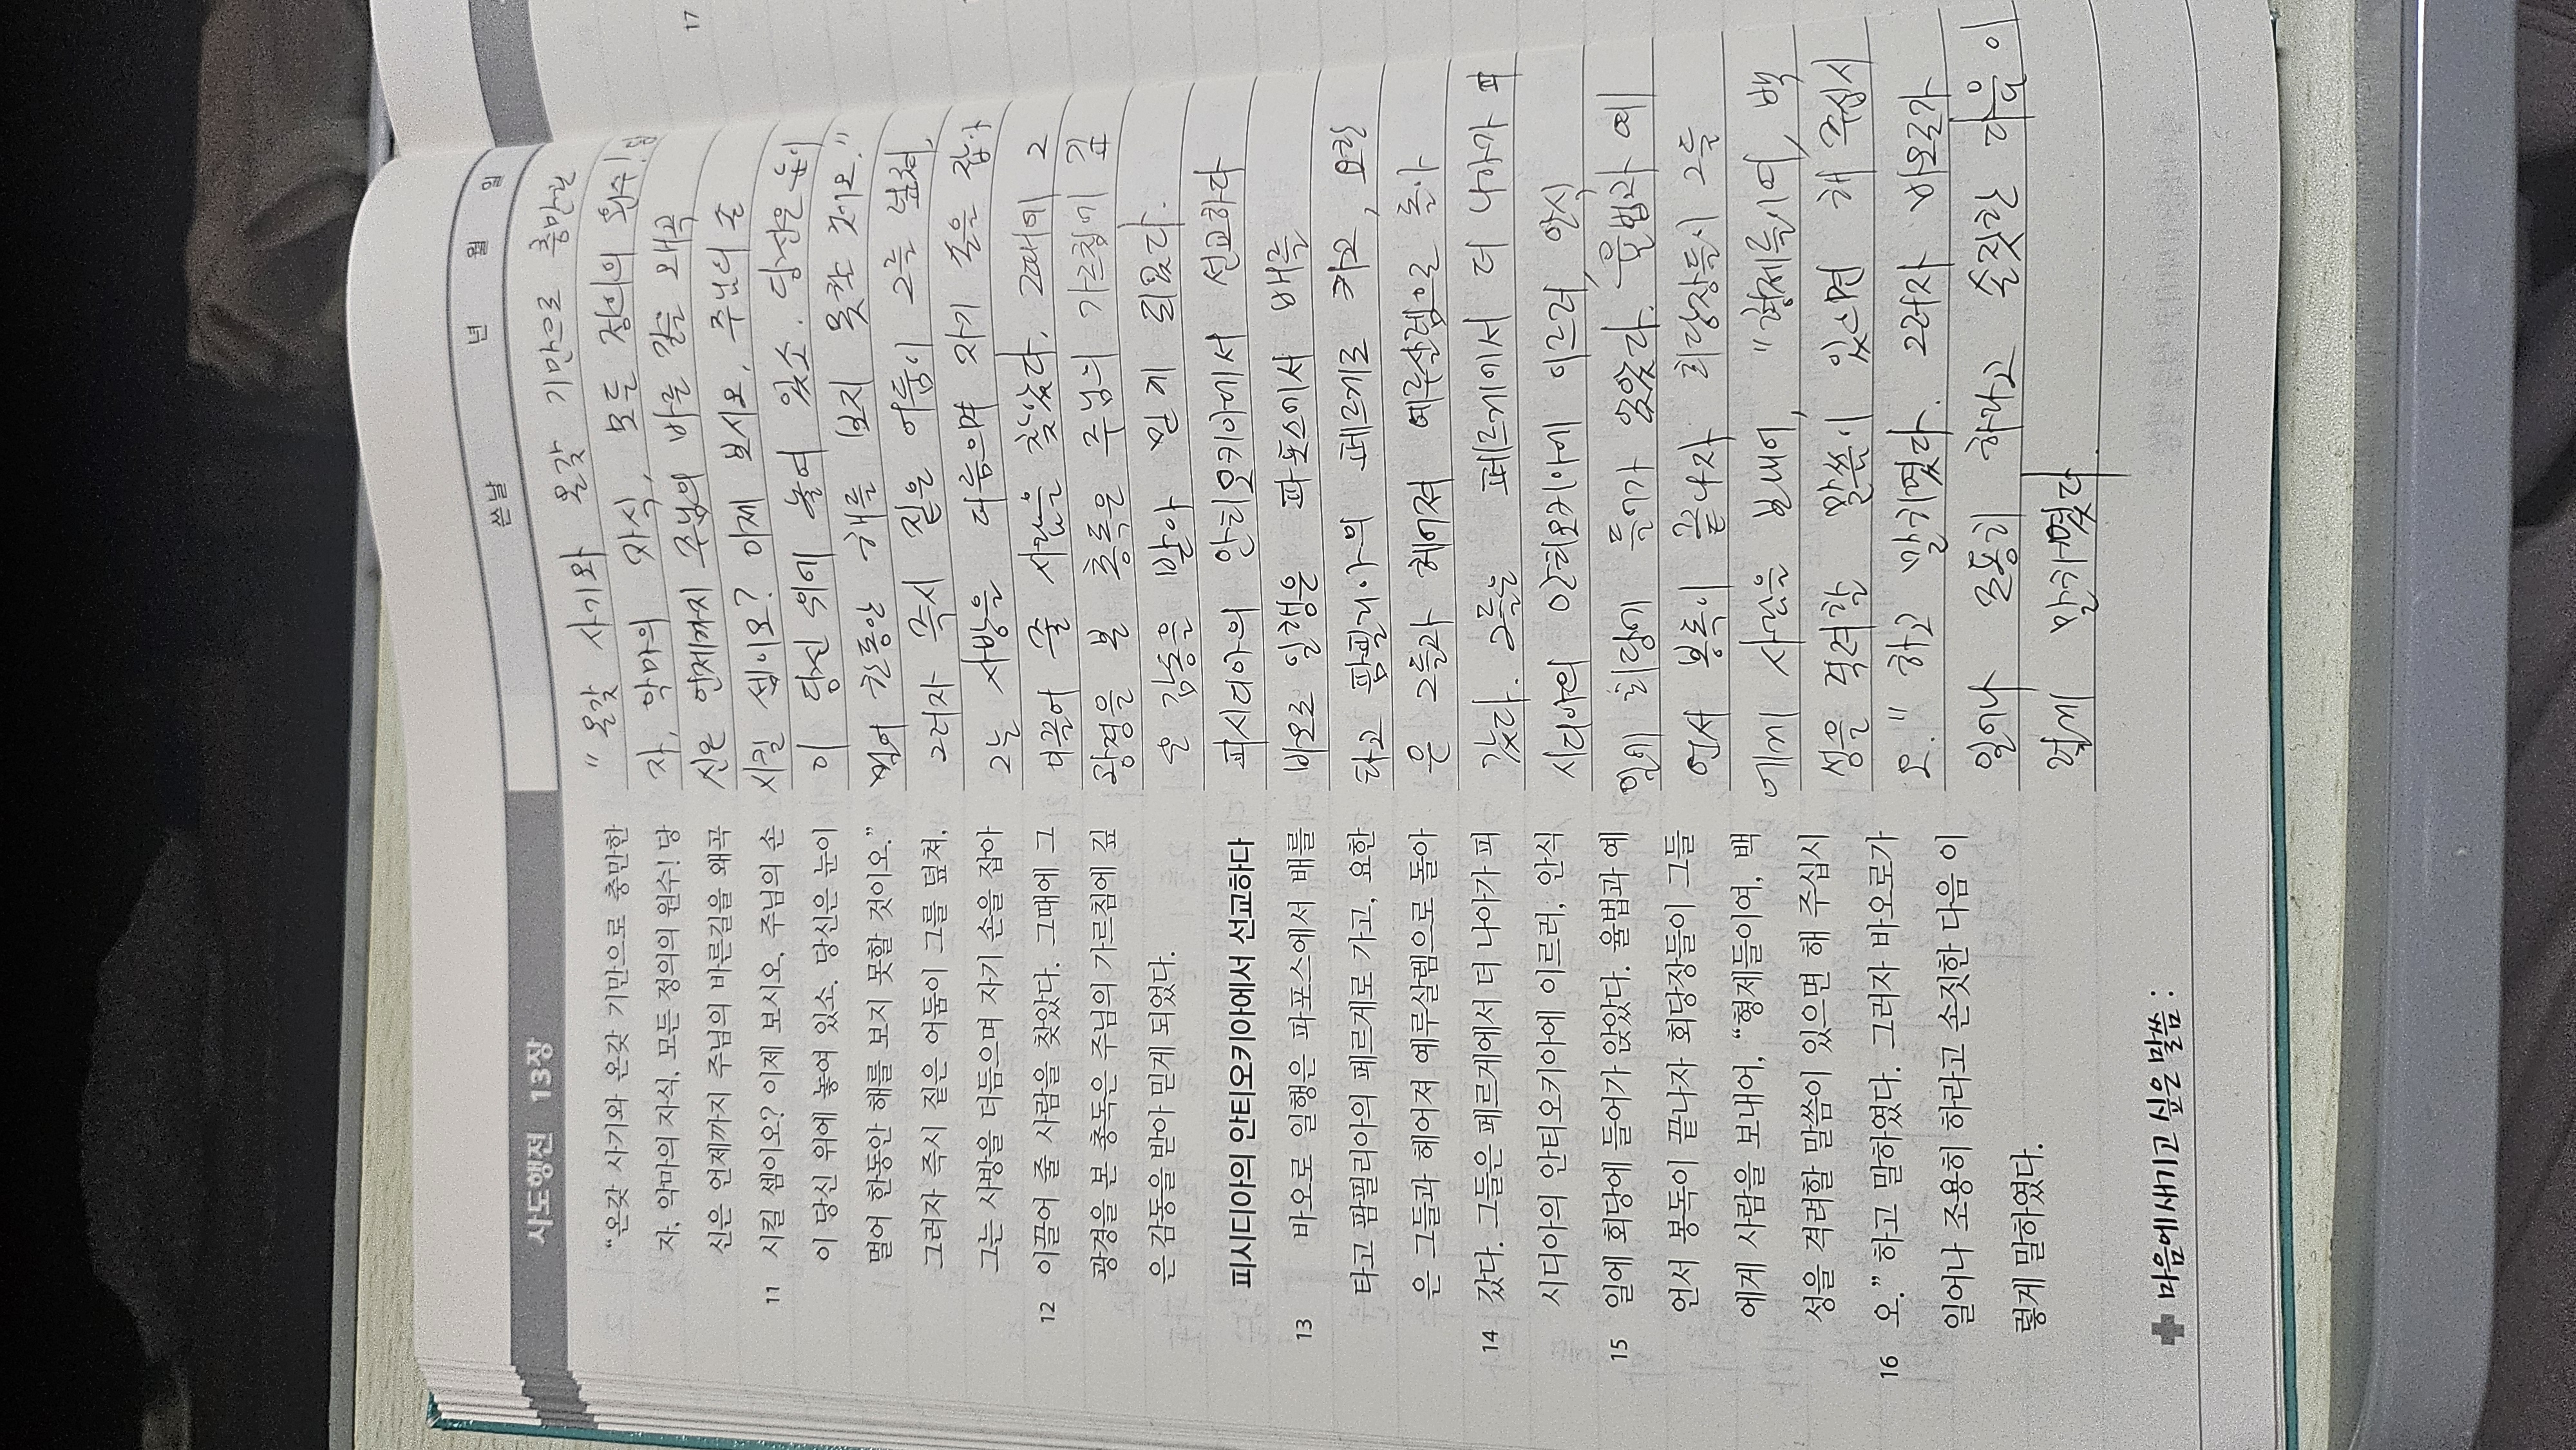 사도행전 13장
"온갖 사기와 온갖 기만으로 충만한
자, 악마의 자식, 모든 정의의 원수! 당
신은 언제까지 주님의 바른길을 왜곡
11 시킬 셈이오? 이제 보시오, 주님의 손
이 당신 위에 놓여 있소. 당신은 눈이
멀어 한동안 해를 보지 못할 것이오."
그러자 즉시 짙은 어둠이 그를 덮쳐,
그는 사방을 더듬으며 자기 손을 잡아
12 이끌어 줄 사람을 찾았다. 그때에 그
광경을 본 총독은 주님의 가르침에 깊
은 감동을 받아 믿게 되었다.
피시디아의 안티오키아에서 선교하다
13 바오로 일행은 파포스에서 배를
타고 팜필리아의 페르게로 가고, 요한
은 그들과 헤어져 예루살렘으로 돌아
14 갔다. 그들은 페르게에서 더 나아가 피
시디아의 안티오키아에 이르러, 안식
15 일에 회당에 들어가 앉았다. 율법과 예
언서 봉독이 끝나자 회당장들이 그들
에게 사람을 보내어, "형제들이여, 백
성을 격려할 말씀이 있으면 해 주십시
16 오." 하고 말하였다. 그러자 바오로가
일어나 조용히 하라고 손짓한 다음 이
렇게 말하였다.
✚ 마음에 새기고 싶은 말씀 :
쓴날 년 월 일
"온갖 사기와 온갖 기만으로 충만한
자, 악마의 자식, 모든 정의의 원수! 당
신은 언제까지 주님의 바른 길을 왜곡
시킬 셈이오? 이제 보시오, 주님의 손
이 당신 위에 놓여 있소. 당신은 눈이
멀어 한동안 해를 보지 못할 것이오."
그러자 즉시 짙은 어둠이 그를 덮쳐,
그는 사방을 더듬으며 자기 손을 잡아
이끌어 줄 사람을 찾았다. 그때에 그
광경을 본 총독은 주님의 가르침에 깊
은 감동을 받아 믿게 되었다.
피시디아의 안티오키아에서 선교하다
바오로 일행은 파포스에서 배를
타고 팜필리아의 페르게로 가고, 요한
은 그들과 헤어져 예루살렘으로 돌아
갔다. 그들은 페르게에서 더 나아가 피
시디아의 안티오키아에 이르러, 안식
일에 회당에 들어가 앉았다. 율법과 예
언서 봉독이 끝나자 회당장들이 그들
에게 사람을 보내어, "형제들이여, 백
성을 격려할 말씀이 있으면 해 주십시
오." 하고 말하였다. 그러자 바오로가
일어나 조용히 하라고 손짓한 다음 이
렇게 말하였다.
17